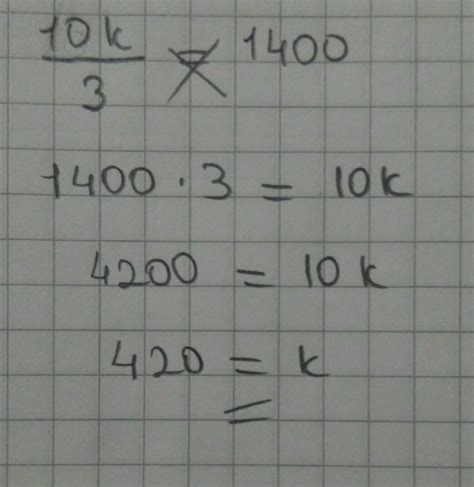 10k/3 = 1400
1400 · 3 = 10k
4200 = 10k
420 = k